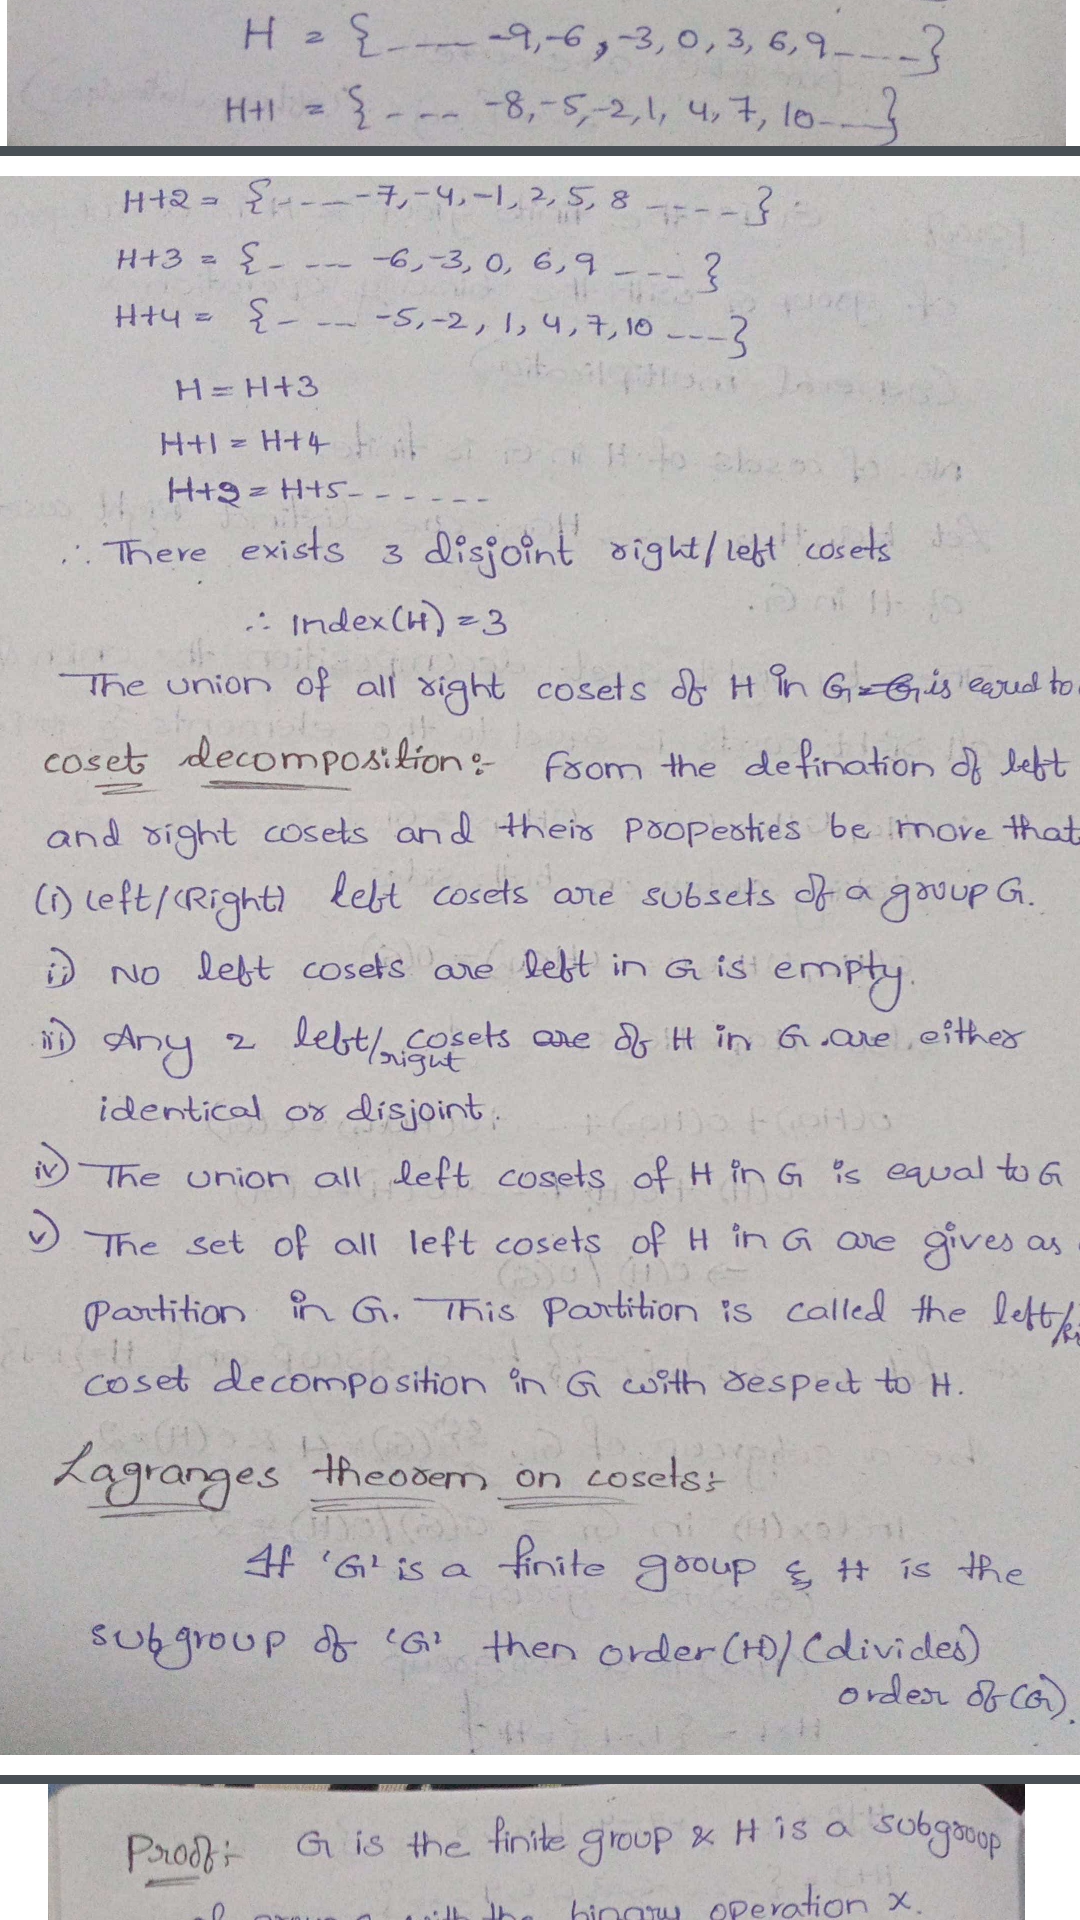 H = {---- -9,-6,-3, 0, 3, 6, 9-----}
H+1 = {---- -8,-5,-2,1, 4, 7, 10----}
H+2 = {-----7,-4,-1, 2, 5, 8 -----}
H+3 = {- --- -6,-3, 0, 6, 9 ----}
H+4 = {- --- -5,-2, 1, 4, 7, 10 ----}
H = H+3
H+1 = H+4
H+2 = H+5- - - - - -
∴ There exists 3 disjoint right/left cosets
∴ Index(H) = 3
The union of all right cosets of H in G=G is equal to
coset decomposition:- From the defination of left
and right cosets and their properties be more that
(i) left/(Right) left cosets are subsets of a group G.
ii) NO left cosets are left in G is empty.
iii) Any 2 left/right cosets are of H in G are either
identical or disjoint.
iv) The union all left cosets of H in G is equal to G
v) The set of all left cosets of H in G are gives as
partition in G. This partition is called the left/
coset decomposition in G with respect to H.
Lagranges theorem on cosets:-
If 'G' is a finite group & H is the
subgroup of 'G' then order(H)/(divides)
order of (G).
Proof:- G is the finite group & H is a subgroop
with the binary operation x.